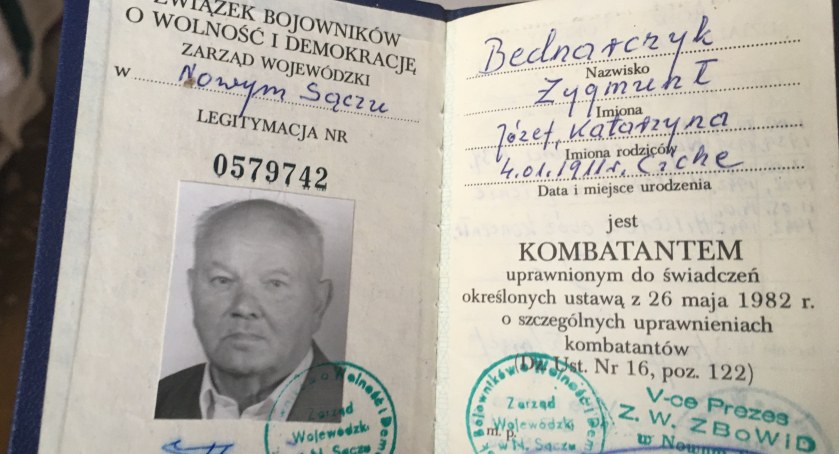 ZWIĄZEK BOJOWNIKÓW
O WOLNOŚĆ I DEMOKRACJĘ
ZARZĄD WOJEWÓDZKI
w Nowym Sączu
LEGITYMACJA NR
0579742
Wolność i Dem
Zarząd
Wojewódzki
w N. Sączu
Bednarczyk
Nazwisko
Zygmunt
Imiona
Józef, Katarzyna
Imiona rodziców
4.01.1911r. Ciche
Data i miejsce urodzenia
jest
KOMBATANTEM
uprawnionym do świadczeń
określonych ustawą z 26 maja 1982 r.
o szczególnych uprawnieniach
kombatantów
(Dz. Ust. Nr 16, poz. 122)
Bojowników o Wolność i Dem
Zarząd
Wojewódzki
w N. Sączu
m. p.
V-ce Prezes
Z. W. ZBoWiD
w Nowym